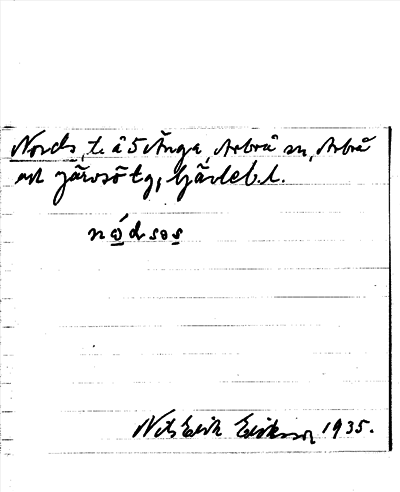 Nords, t. å 5 Änga, Arbrå sn, Arbrå
och Järvsö tg, Gävleb. l.
nódsos
Nils Erik Eriksson 1935.